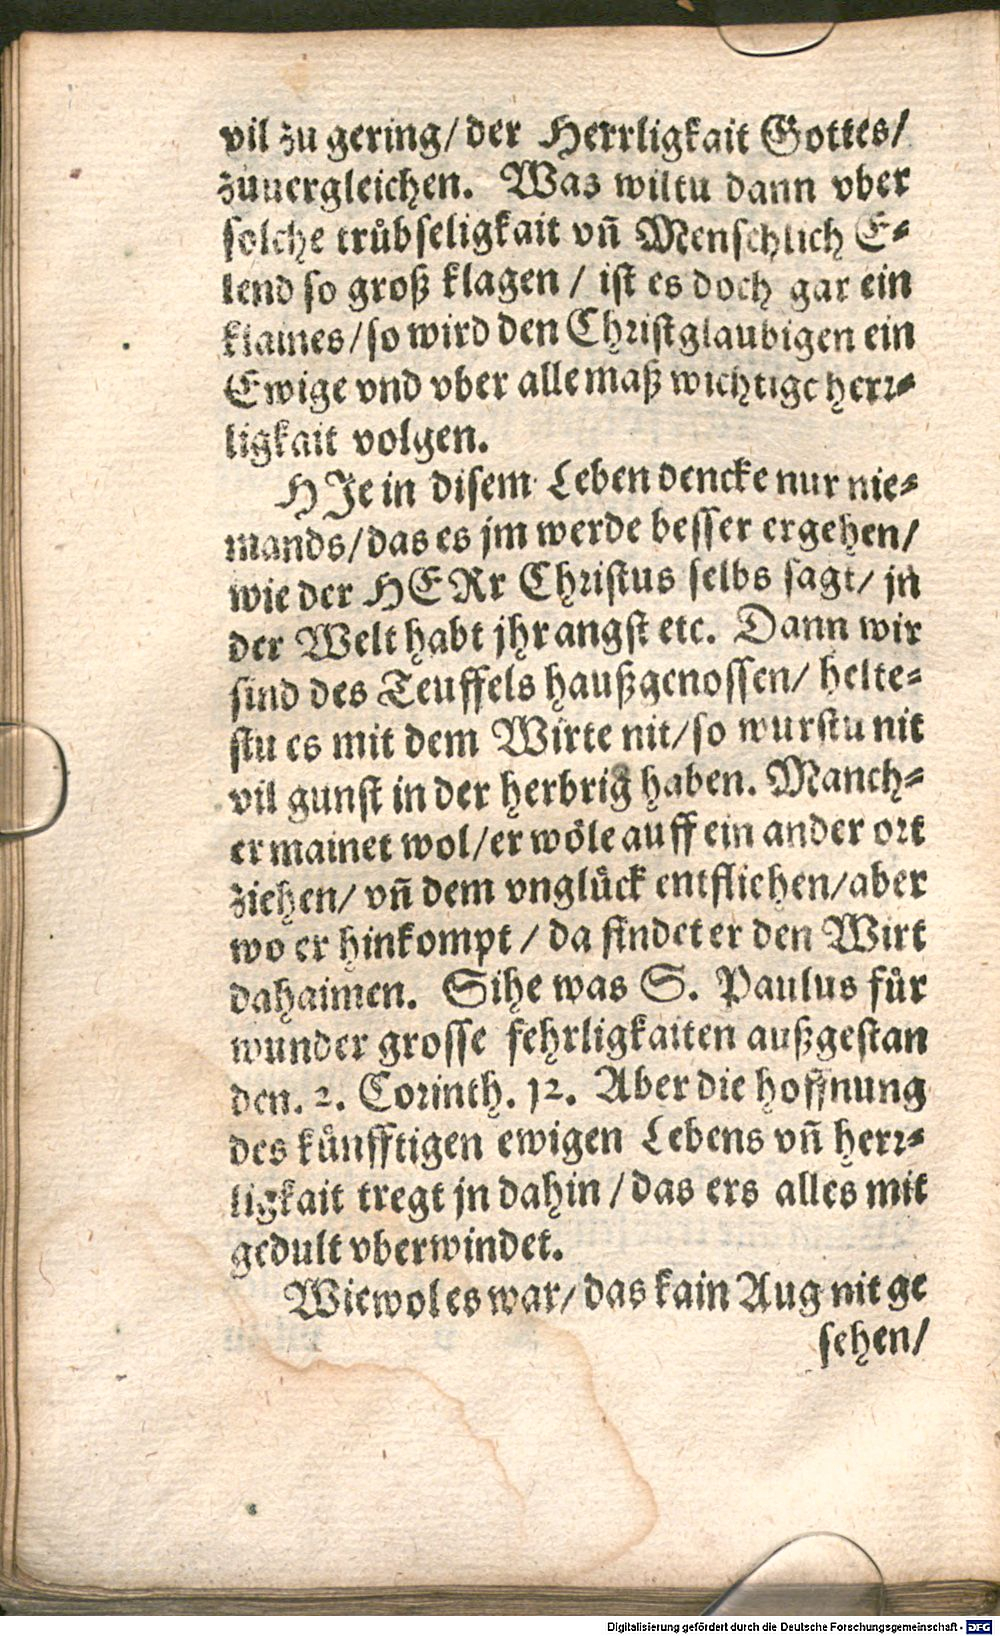 vil zu gering/ der Herrligkait Gottes/
zuuergleichen. Was wiltu dann vber
solche trůbseligkait vñ Menschlich E⸗
lend so groß klagen / ist es doch gar ein
klaines/ so wird den Christglaubigen ein
Ewige vnd vber alle maß wichtige herr⸗
ligkait volgen.
HJe in disem Leben dencke nur nie⸗
mands/ das es jm werde besser ergehen/
wie der HERr Christus selbs sagt/ jn
der Welt habt jhr angst etc. Dann wir
sind des Teuffels haußgenossen/ helte⸗
stu es mit dem Wirte nit/ so wurstu nit
vil gunst in der herbrig haben. Manch⸗
er mainet wol/ er wöle auff ein ander ort
ziehen/ vñ dem vnglůck entfliehen/ aber
wo er hinkompt / da findet er den Wirt
dahaimen. Sihe was S. Paulus fůr
wunder grosse fehrligkaiten außgestan
den. 2. Corinth. 12. Aber die hoffnung
des kůnfftigen ewigen Lebens vñ herr⸗
ligkait tregt jn dahin / das ers alles mit
gedult vberwindet.
Wiewol es war/ das kain Aug nit ge
sehen/
Digitalisierung gefördert durch die Deutsche Forschungsgemeinschaft - DFG